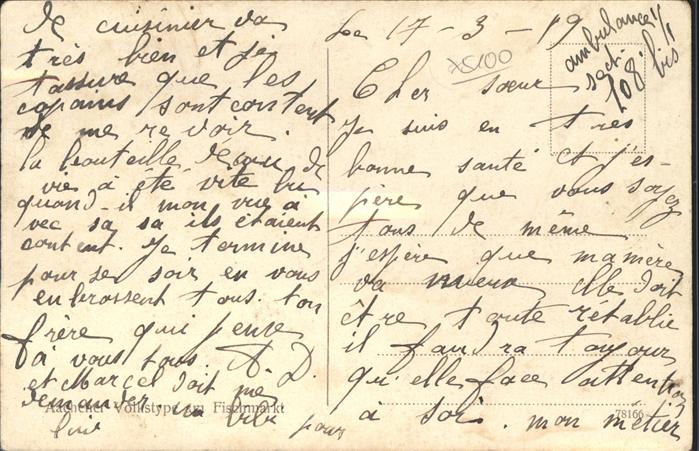 Le 17-3-19
ambulance 1/1
sect.
108 bis
75100
Cher sœur
Je suis en très
bonne santé et j'es-
père que vous soyez
tous de même
j'espère que ma mère
va mieux elle doit
être toute rétablie
il faudra toujour
qu'elle face attention
à soi. mon métier
de cuisinier va
très bien et je
t'assure que les
copains sont content
de me revoir.
la bouteille deau de
vie à été vite bu
quand-il mon vue à
vec sa sa ils étaient
content. Je termine
pour se soir en vous
enbrossent tous. ton
frère qui pense
à vous tous. A.D.
et Marcel doit me
demander un bibi pour
lui
Aachener Volkstype am Fischmarkt
78166